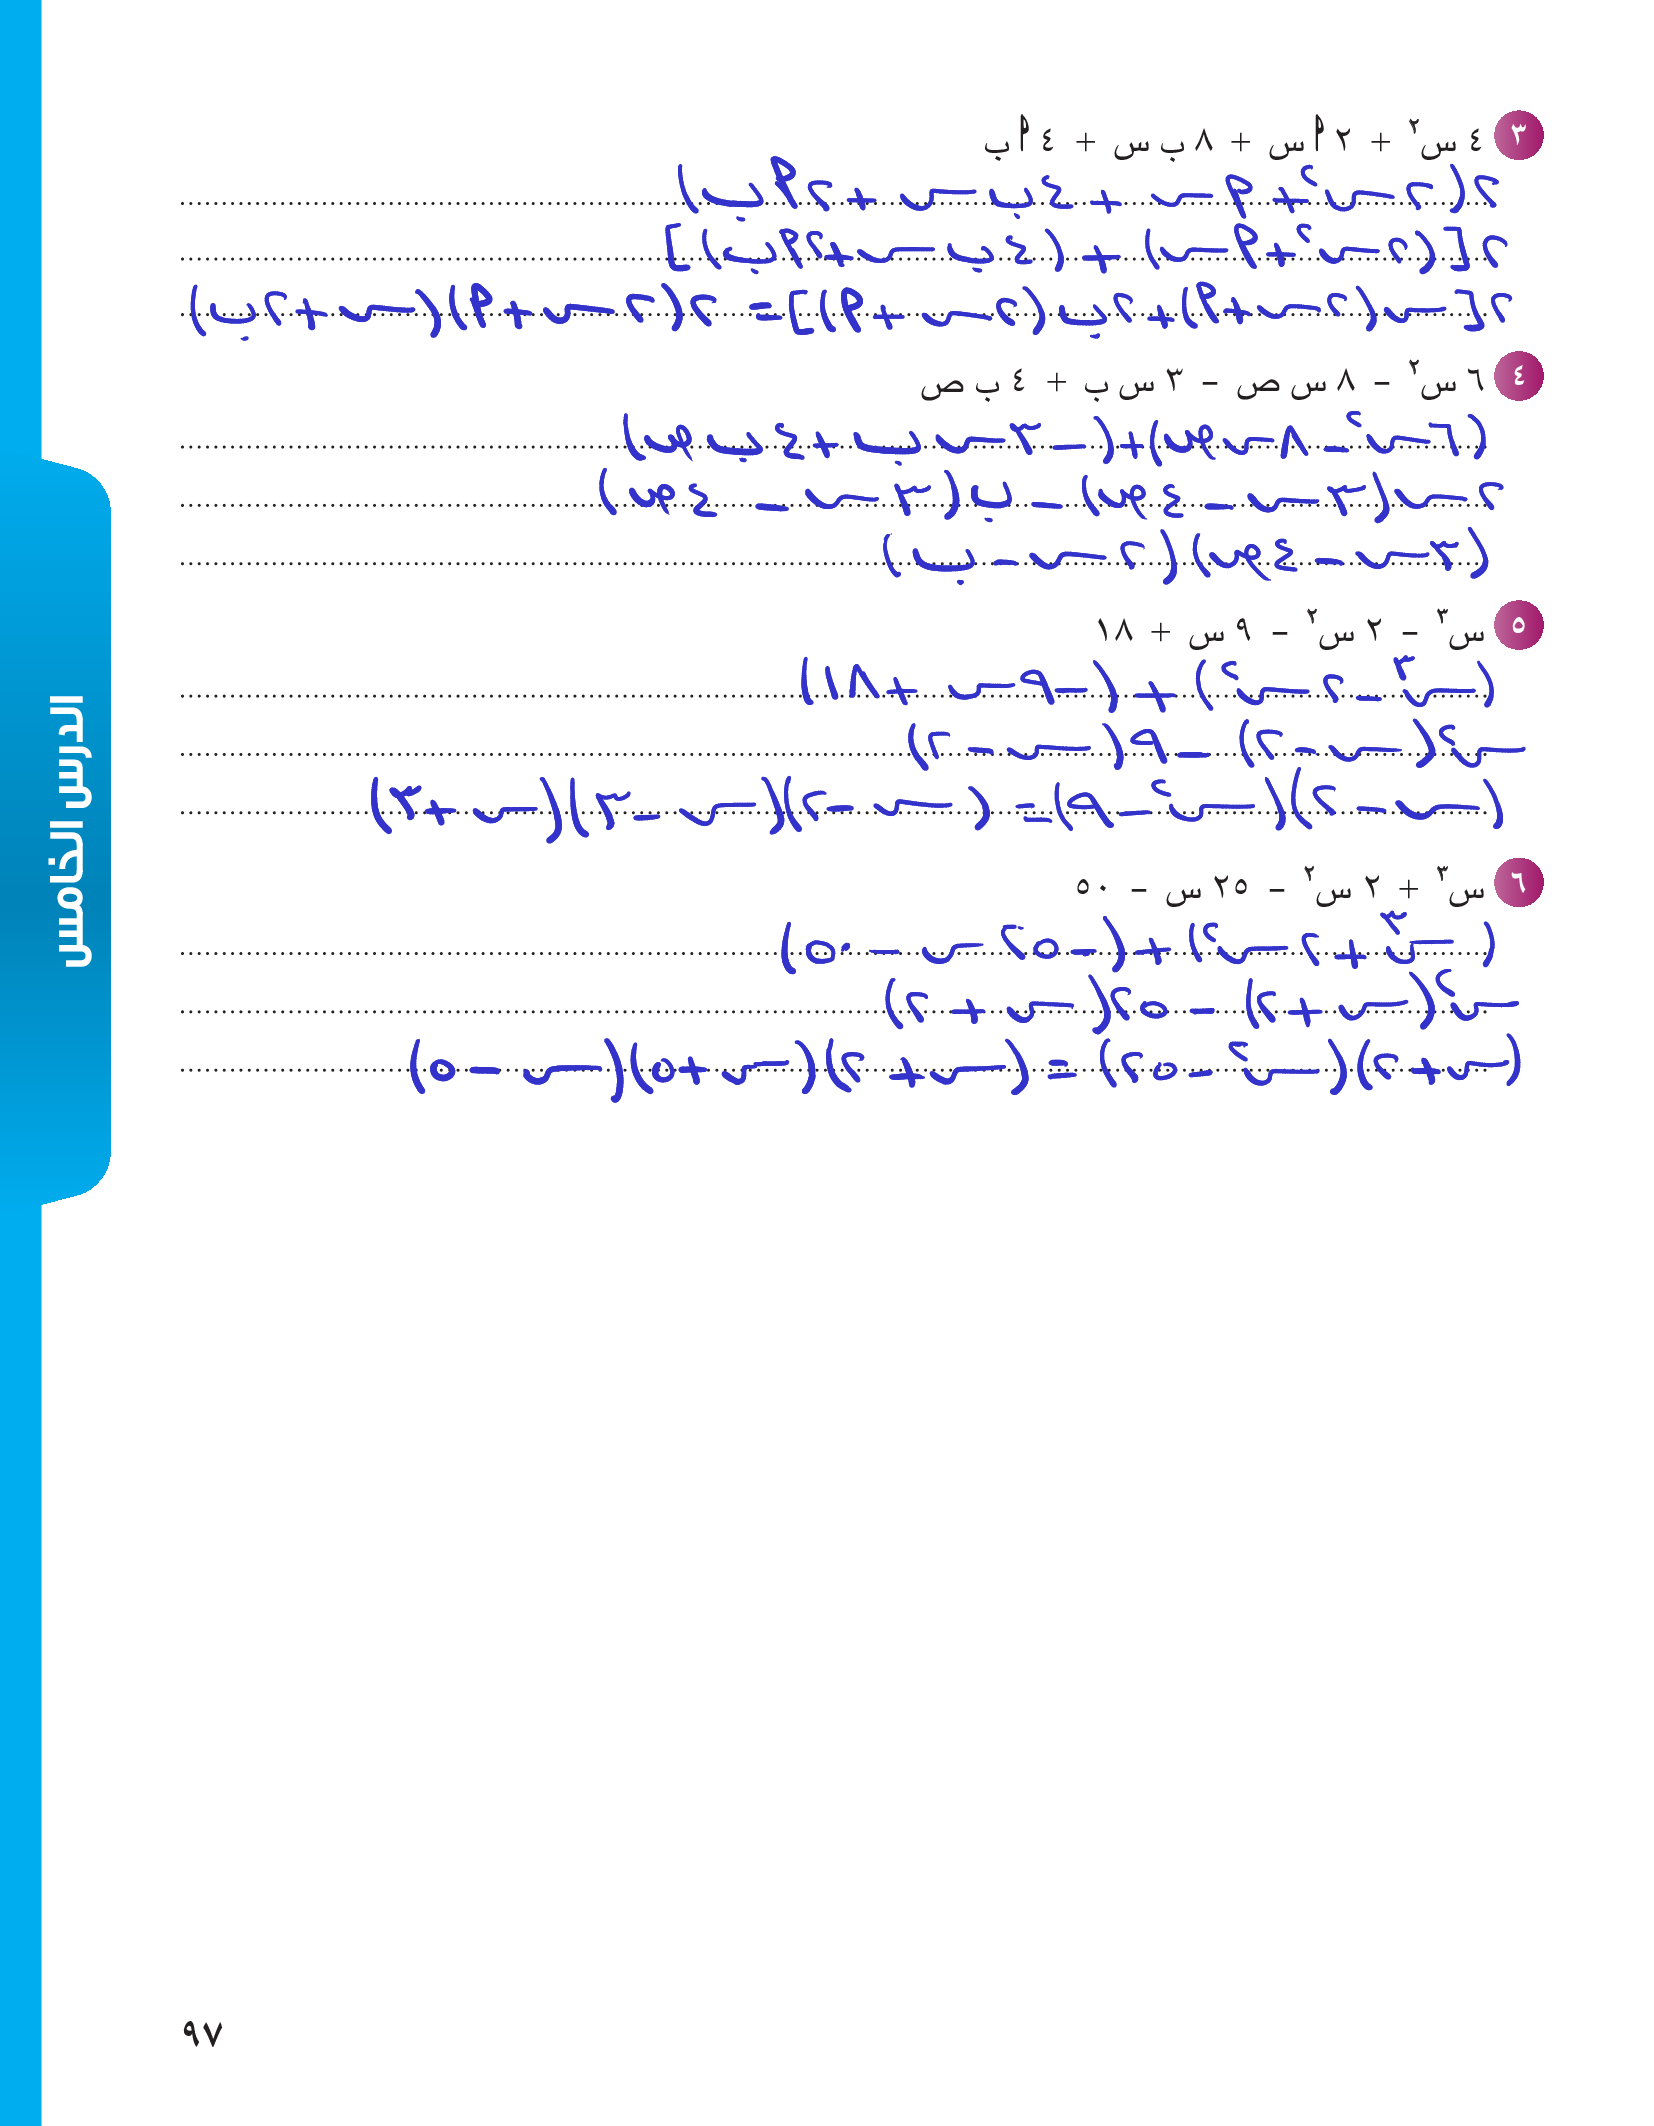 ٣ ٤ س٢ + ٢ أ س + ٨ ب س + ٤ أ ب
٢(٢س٢ + أس + ٤ب س + ٢أب)
٢[(٢س٢+أس) + (٤ب س+٢أب)]
٢[س(٢س+أ)+٢ب(٢س+أ)] = ٢(٢س+أ)(س+٢ب)
٤ ٦ س٢ – ٨ س ص – ٣ س ب + ٤ ب ص
(٦س٢-٨س ص)+(-٣س ب+٤ب ص)
٢س(٣س-٤ص) - ب(٣س - ٤ص)
(٣س-٤ص)(٢س-ب)
٥ س٣ – ٢ س٢ – ٩ س + ١٨
(س٣-٢س٢) + (-٩س + ١٨)
س٢(س-٢) - ٩(س-٢)
(س-٢)(س٢-٩) = (س-٢)(س-٣)(س+٣)
٦ س٣ + ٢ س٢ – ٢٥ س – ٥٠
(س٣+٢س٢)+(-٢٥س - ٥٠)
س٢(س+٢) - ٢٥(س + ٢)
(س+٢)(س٢-٢٥) = (س+٢)(س+٥)(س-٥)
الدرس الخامس
٩٧